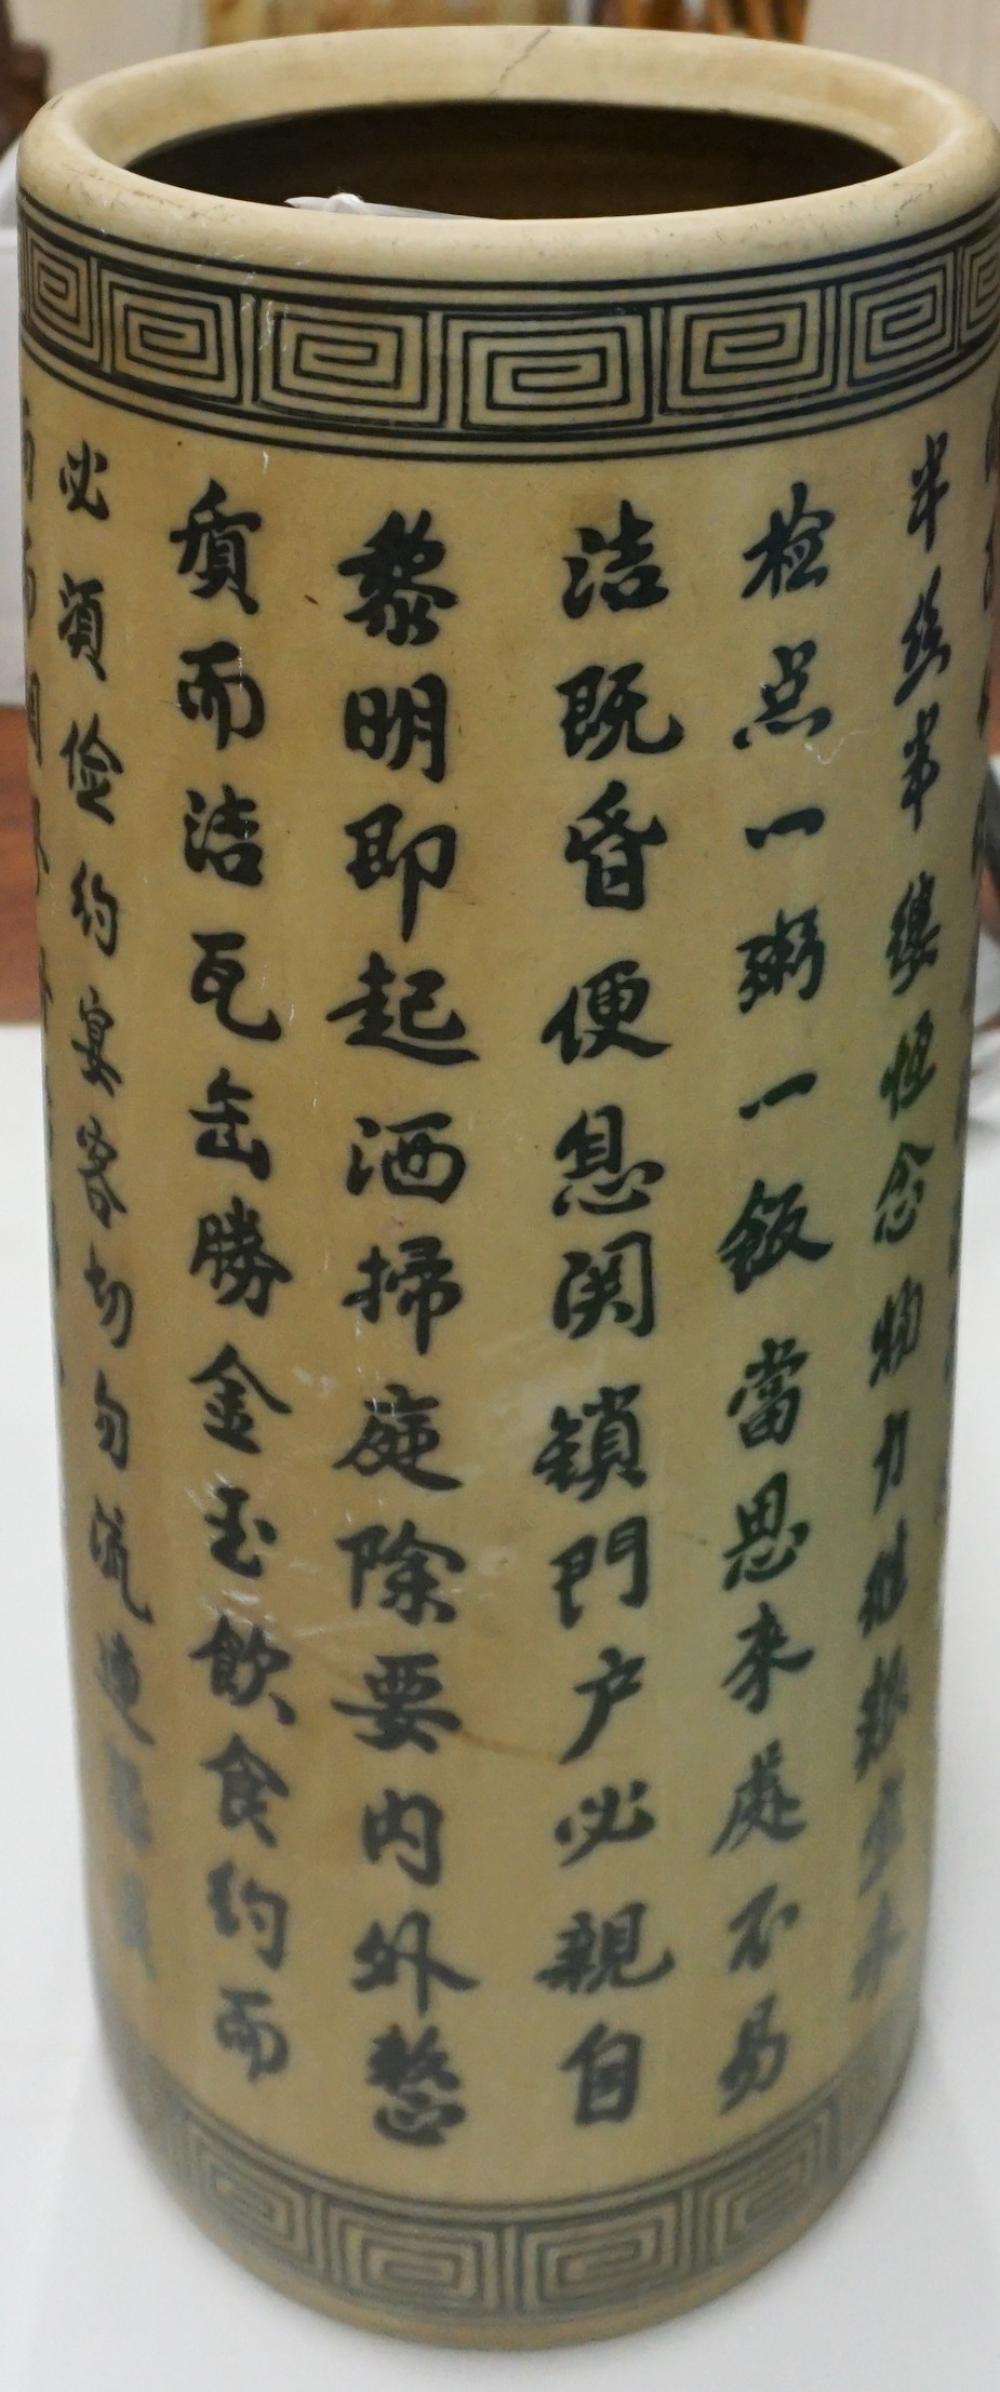 必須俭約宴客切勿流連器具
質而洁瓦缶勝金玉飲食約而
黎明即起洒掃庭除要内外整
洁既昏便息関鎖門户必親自
检点一粥一飯當思來處不易
半絲半縷恒念物力維艱宜未